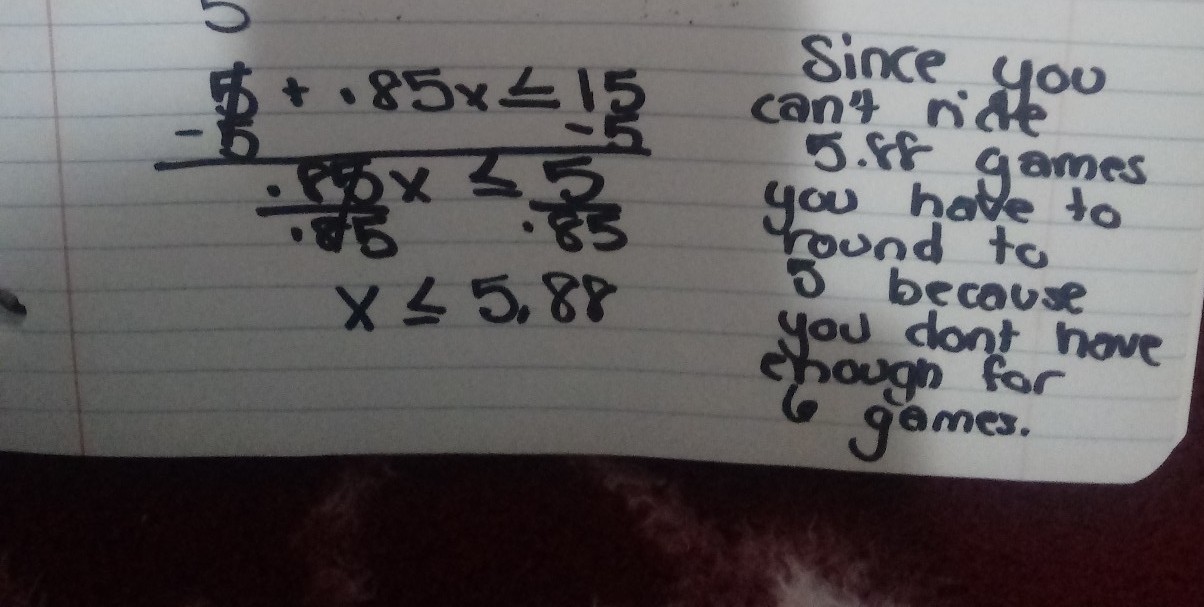 5
5 + .85x ≤ 15
-5 -5
.85x ≤ 5
.85 .85
x ≤ 5.88
Since you
can't ride
5.88 games
you have to
round to
5 because
you dont have
enough for
6 games.